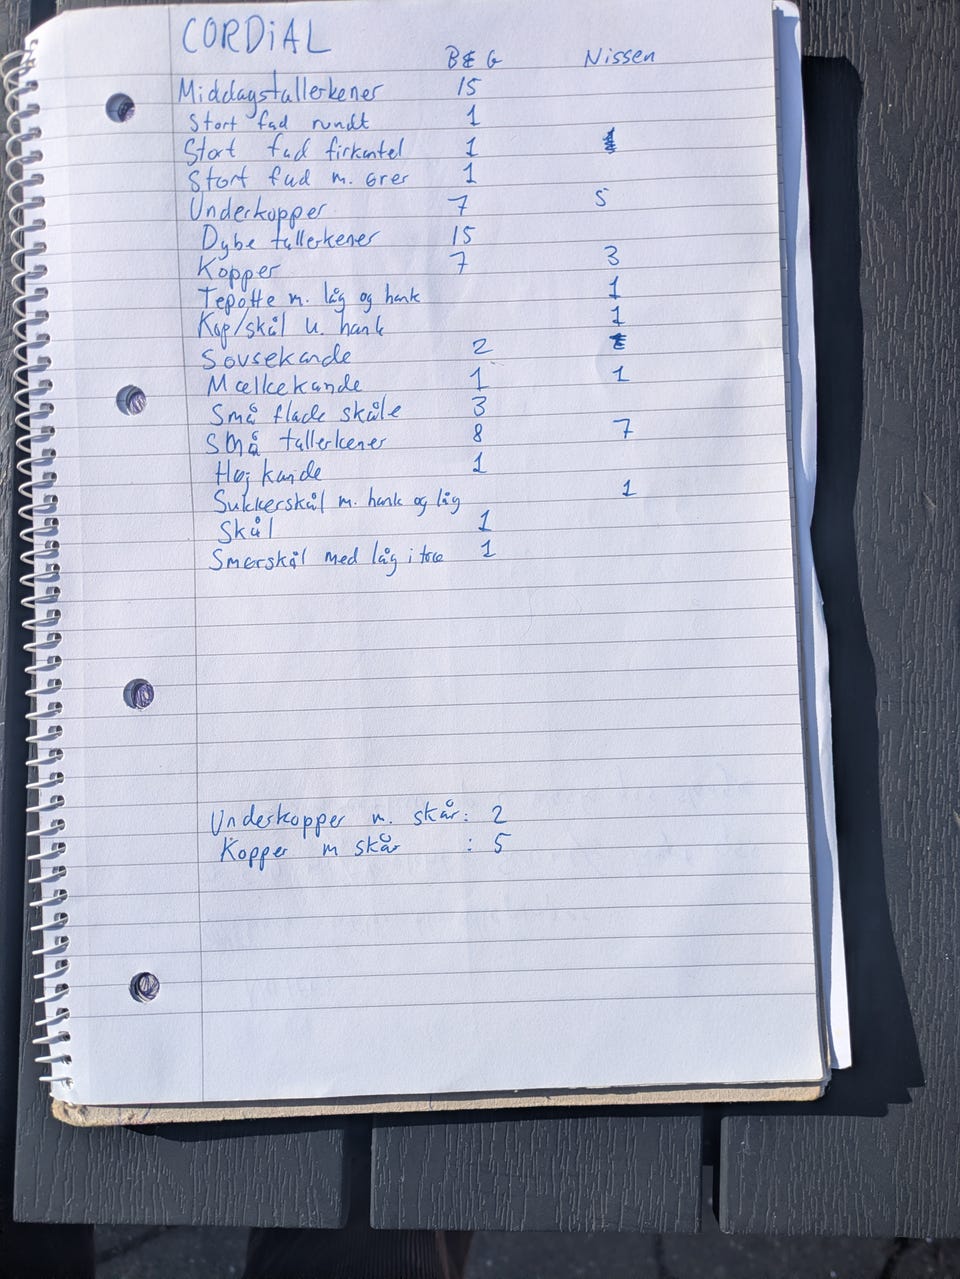 CORDiAL
B & G Nissen
Middagstallerkener 15
Stort fad rundt 1
Stort fad firkantet 1
Stort fad m. ører 1
Underkopper 7 5
Dybe tallerkener 15
Kopper 7 3
Tepotte m. låg og hank 1
Kop/skål u. hank 1
Sovsekande 2
Mælkekande 1 1
Små flade skåle 3
Små tallerkener 8 7
Høj kande 1
Sukkerskål m. hank og låg 1
Skål 1
Smørskål med låg i træ 1
Underkopper m. skår: 2
Kopper m skår : 5